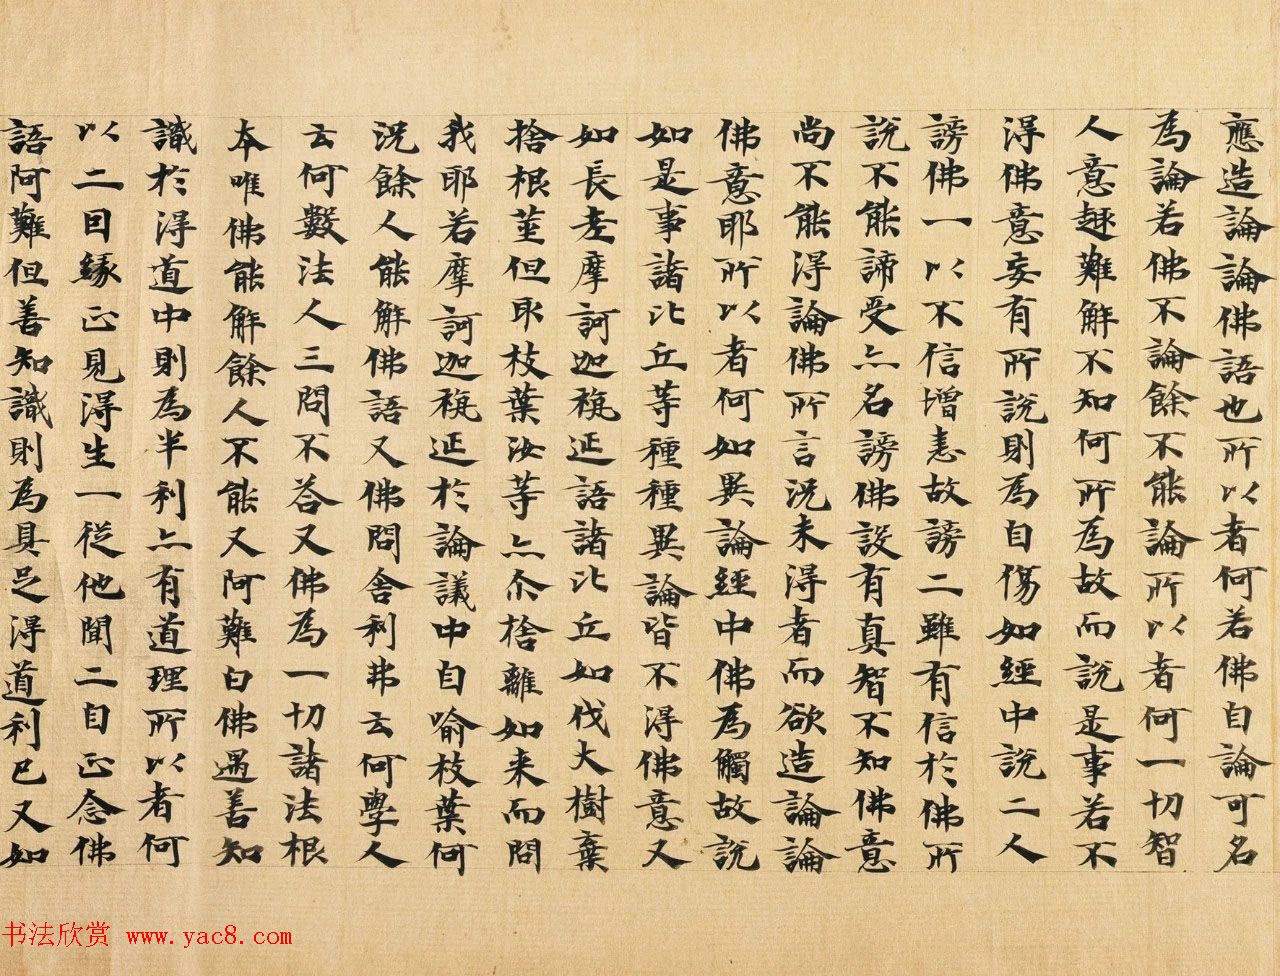 應造論論佛語也所以者何若佛自論可名
為論若佛不論餘不能論所以者何一切智
人意趣難解不知何所為故而說是事若不
得佛意妄有所說則為自傷如經中說二人
謗佛一以不信增恚故謗二雖有信於佛所
說不能諦受亦名謗佛設有真智不知佛意
尚不能得論佛所言況未得者而欲造論論
佛意耶所以者何如異論經中佛為觸故說
如是事諸比丘等種種異論皆不得佛意又
如長老摩訶迦栴延語諸比丘如伐大樹棄
捨根莖但取枝葉汝等亦尒捨離如来而問
我耶若摩訶迦栴延於論議中自喻枝葉何
況餘人能解佛語又佛問舍利弗云何學人
云何數法人三問不荅又佛為一切諸法根
本唯佛能解餘人不能又阿難白佛遇善知
識於得道中則為半利亦有道理所以者何
以二因緣正見得生一從他聞二自正念佛
語阿難但善知識則為具足得道利已又如
书法欣赏 www.yac8.com